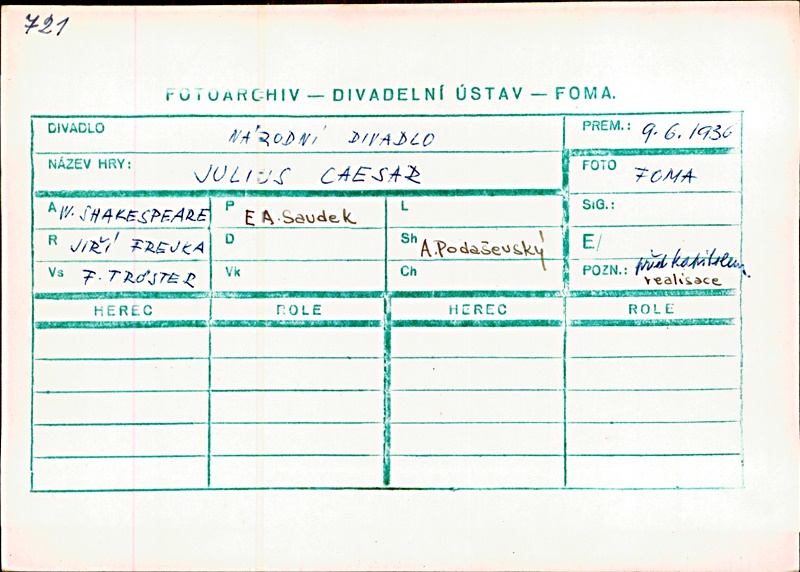 721
FOTOARCHIV — DIVADELNÍ ÚSTAV — FOMA.
DIVADLO NÁRODNÍ DIVADLO PREM.: 9.6.1936
NÁZEV HRY: JULIUS CAESAR FOTO FOMA
A W. SHAKESPEARE P E A. Saudek L SIG.:
R JIŘÍ FREJKA D Sh A. Podaševský E/
Vs F. TRÖSTER Vk Ch POZN.: před kapitolem
realisace
HEREC ROLE HEREC ROLE